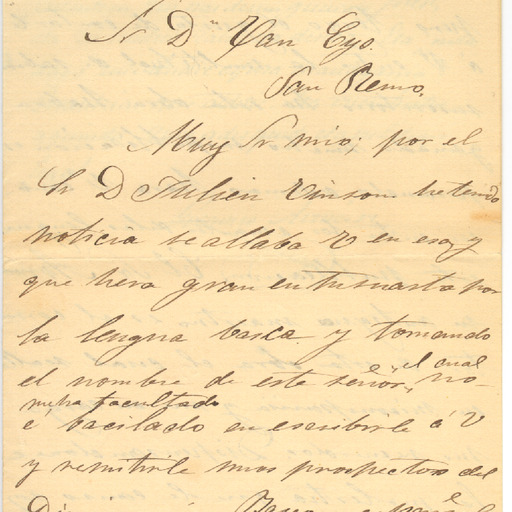 Sr Dn Van Eys.
San Remo.
Muy Sr mio; por el
Sr D Julien Vinson he tenido
noticia se allaba V en esa, y
que hera gran entusiasta por
la lengua basca y tomando
el nombre de este señor, "el cual
me ha facultado" no
é bacilado en escribirle á V
y remitirle unos prospectos del